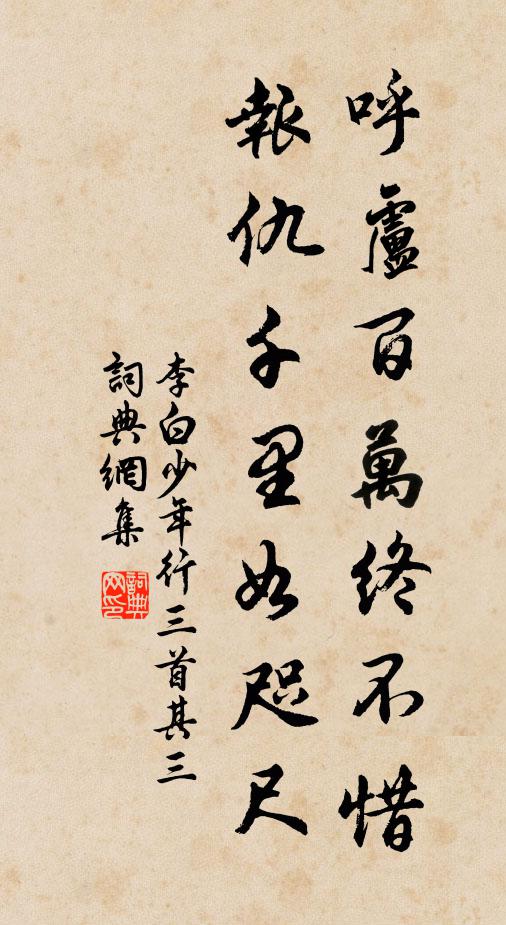 呼盧百萬終不惜
報仇千里如咫尺
李白少年行三首其三
詞典網集
詞典
网印